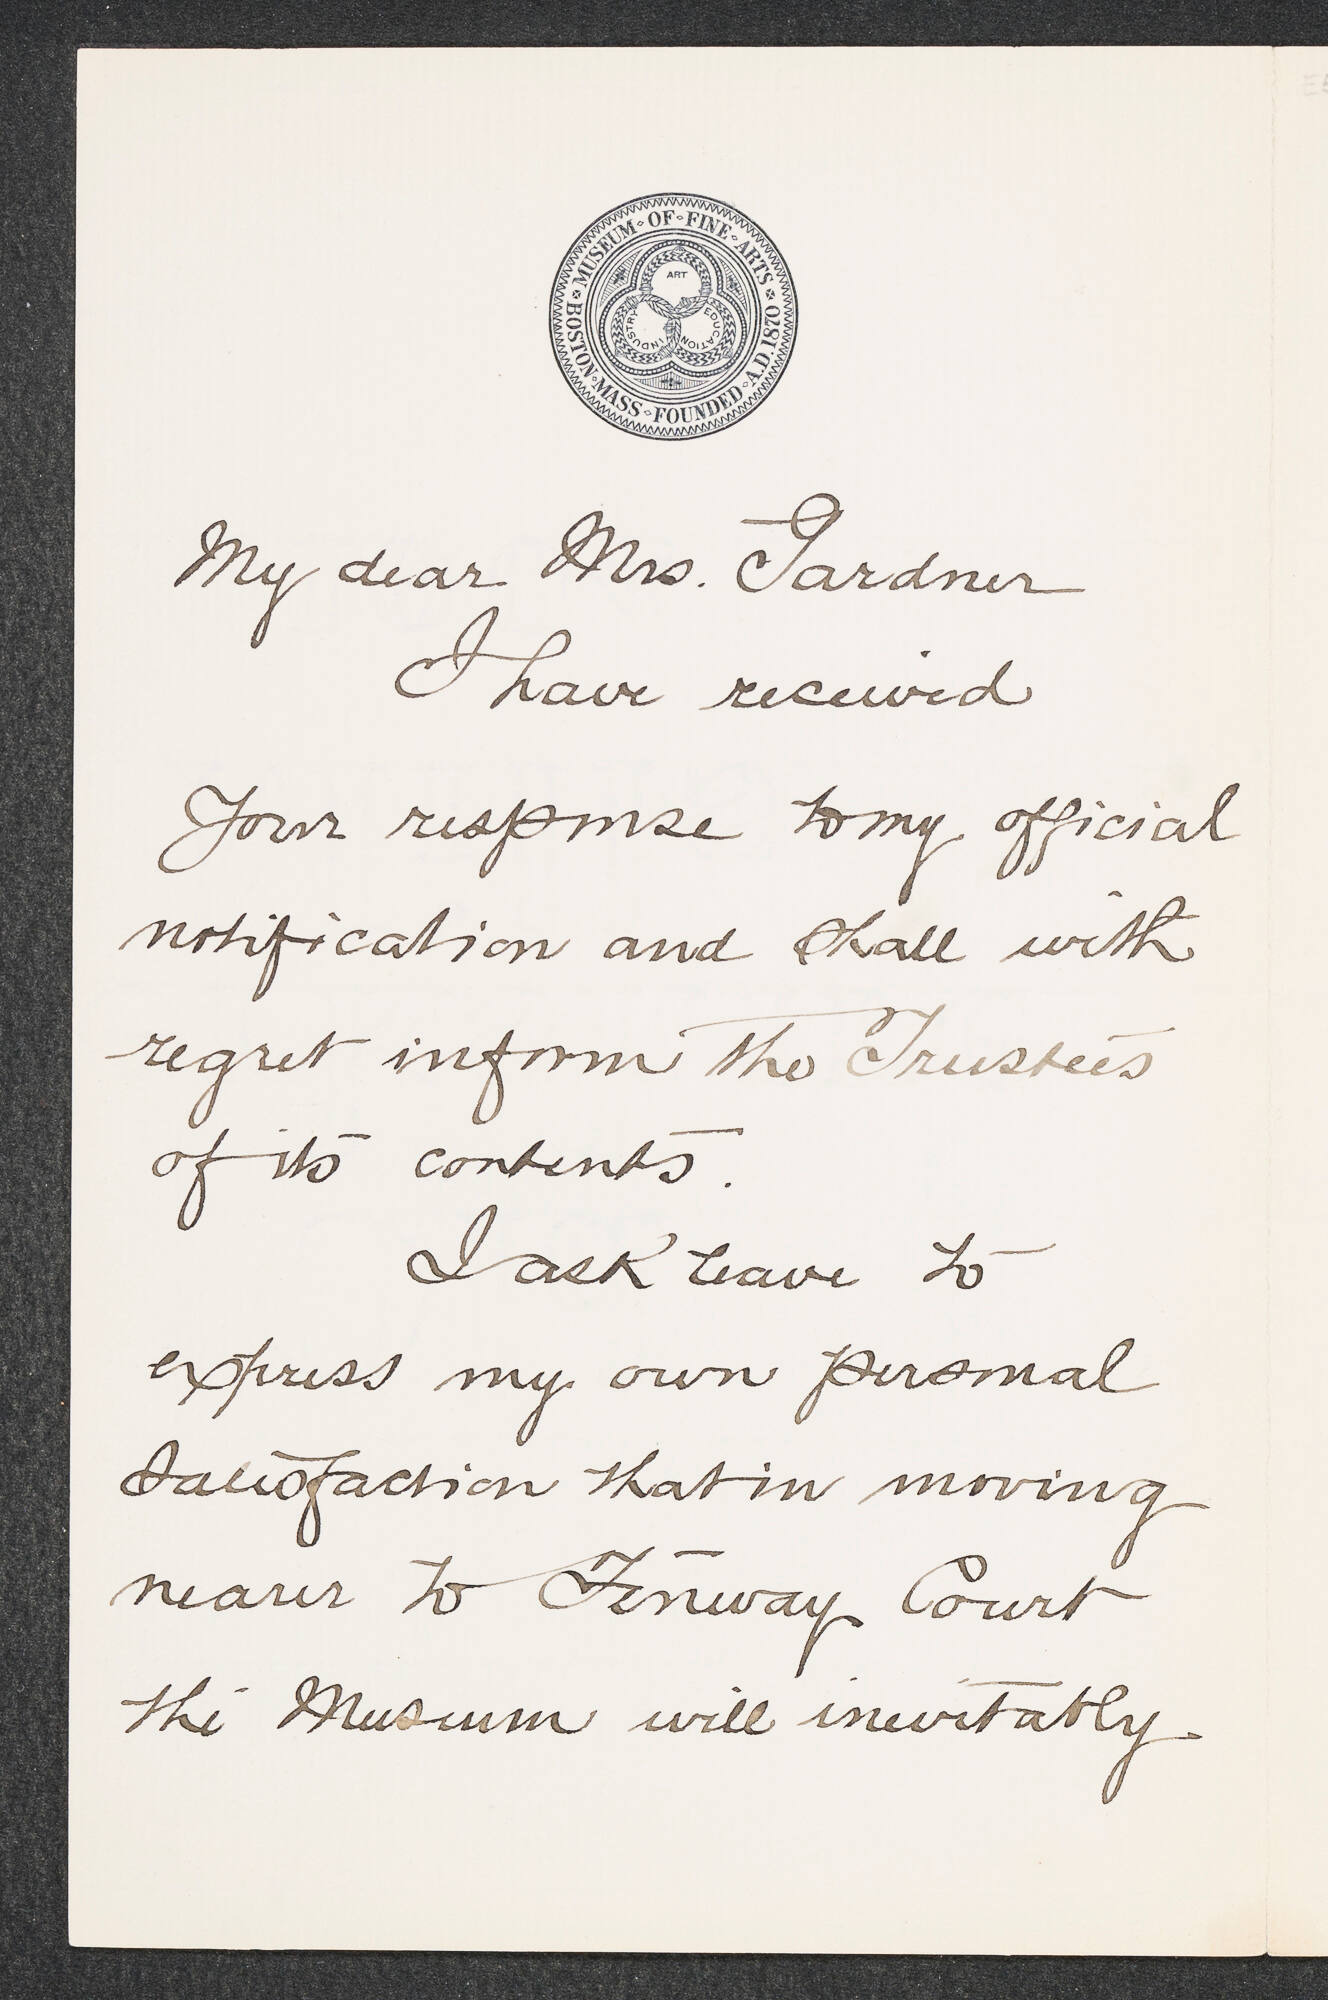 MUSEUM · OF · FINE · ARTS
BOSTON · MASS · FOUNDED · A.D. 1870
ART
INDUSTRY
EDUCATION
My dear Mrs. Gardner
I have received
Your response to my official
notification and shall with
regret inform the Trustees
of its contents.
I ask leave to
express my own personal
satisfaction that in moving
nearer to Fenway Court
the Museum will inevitably